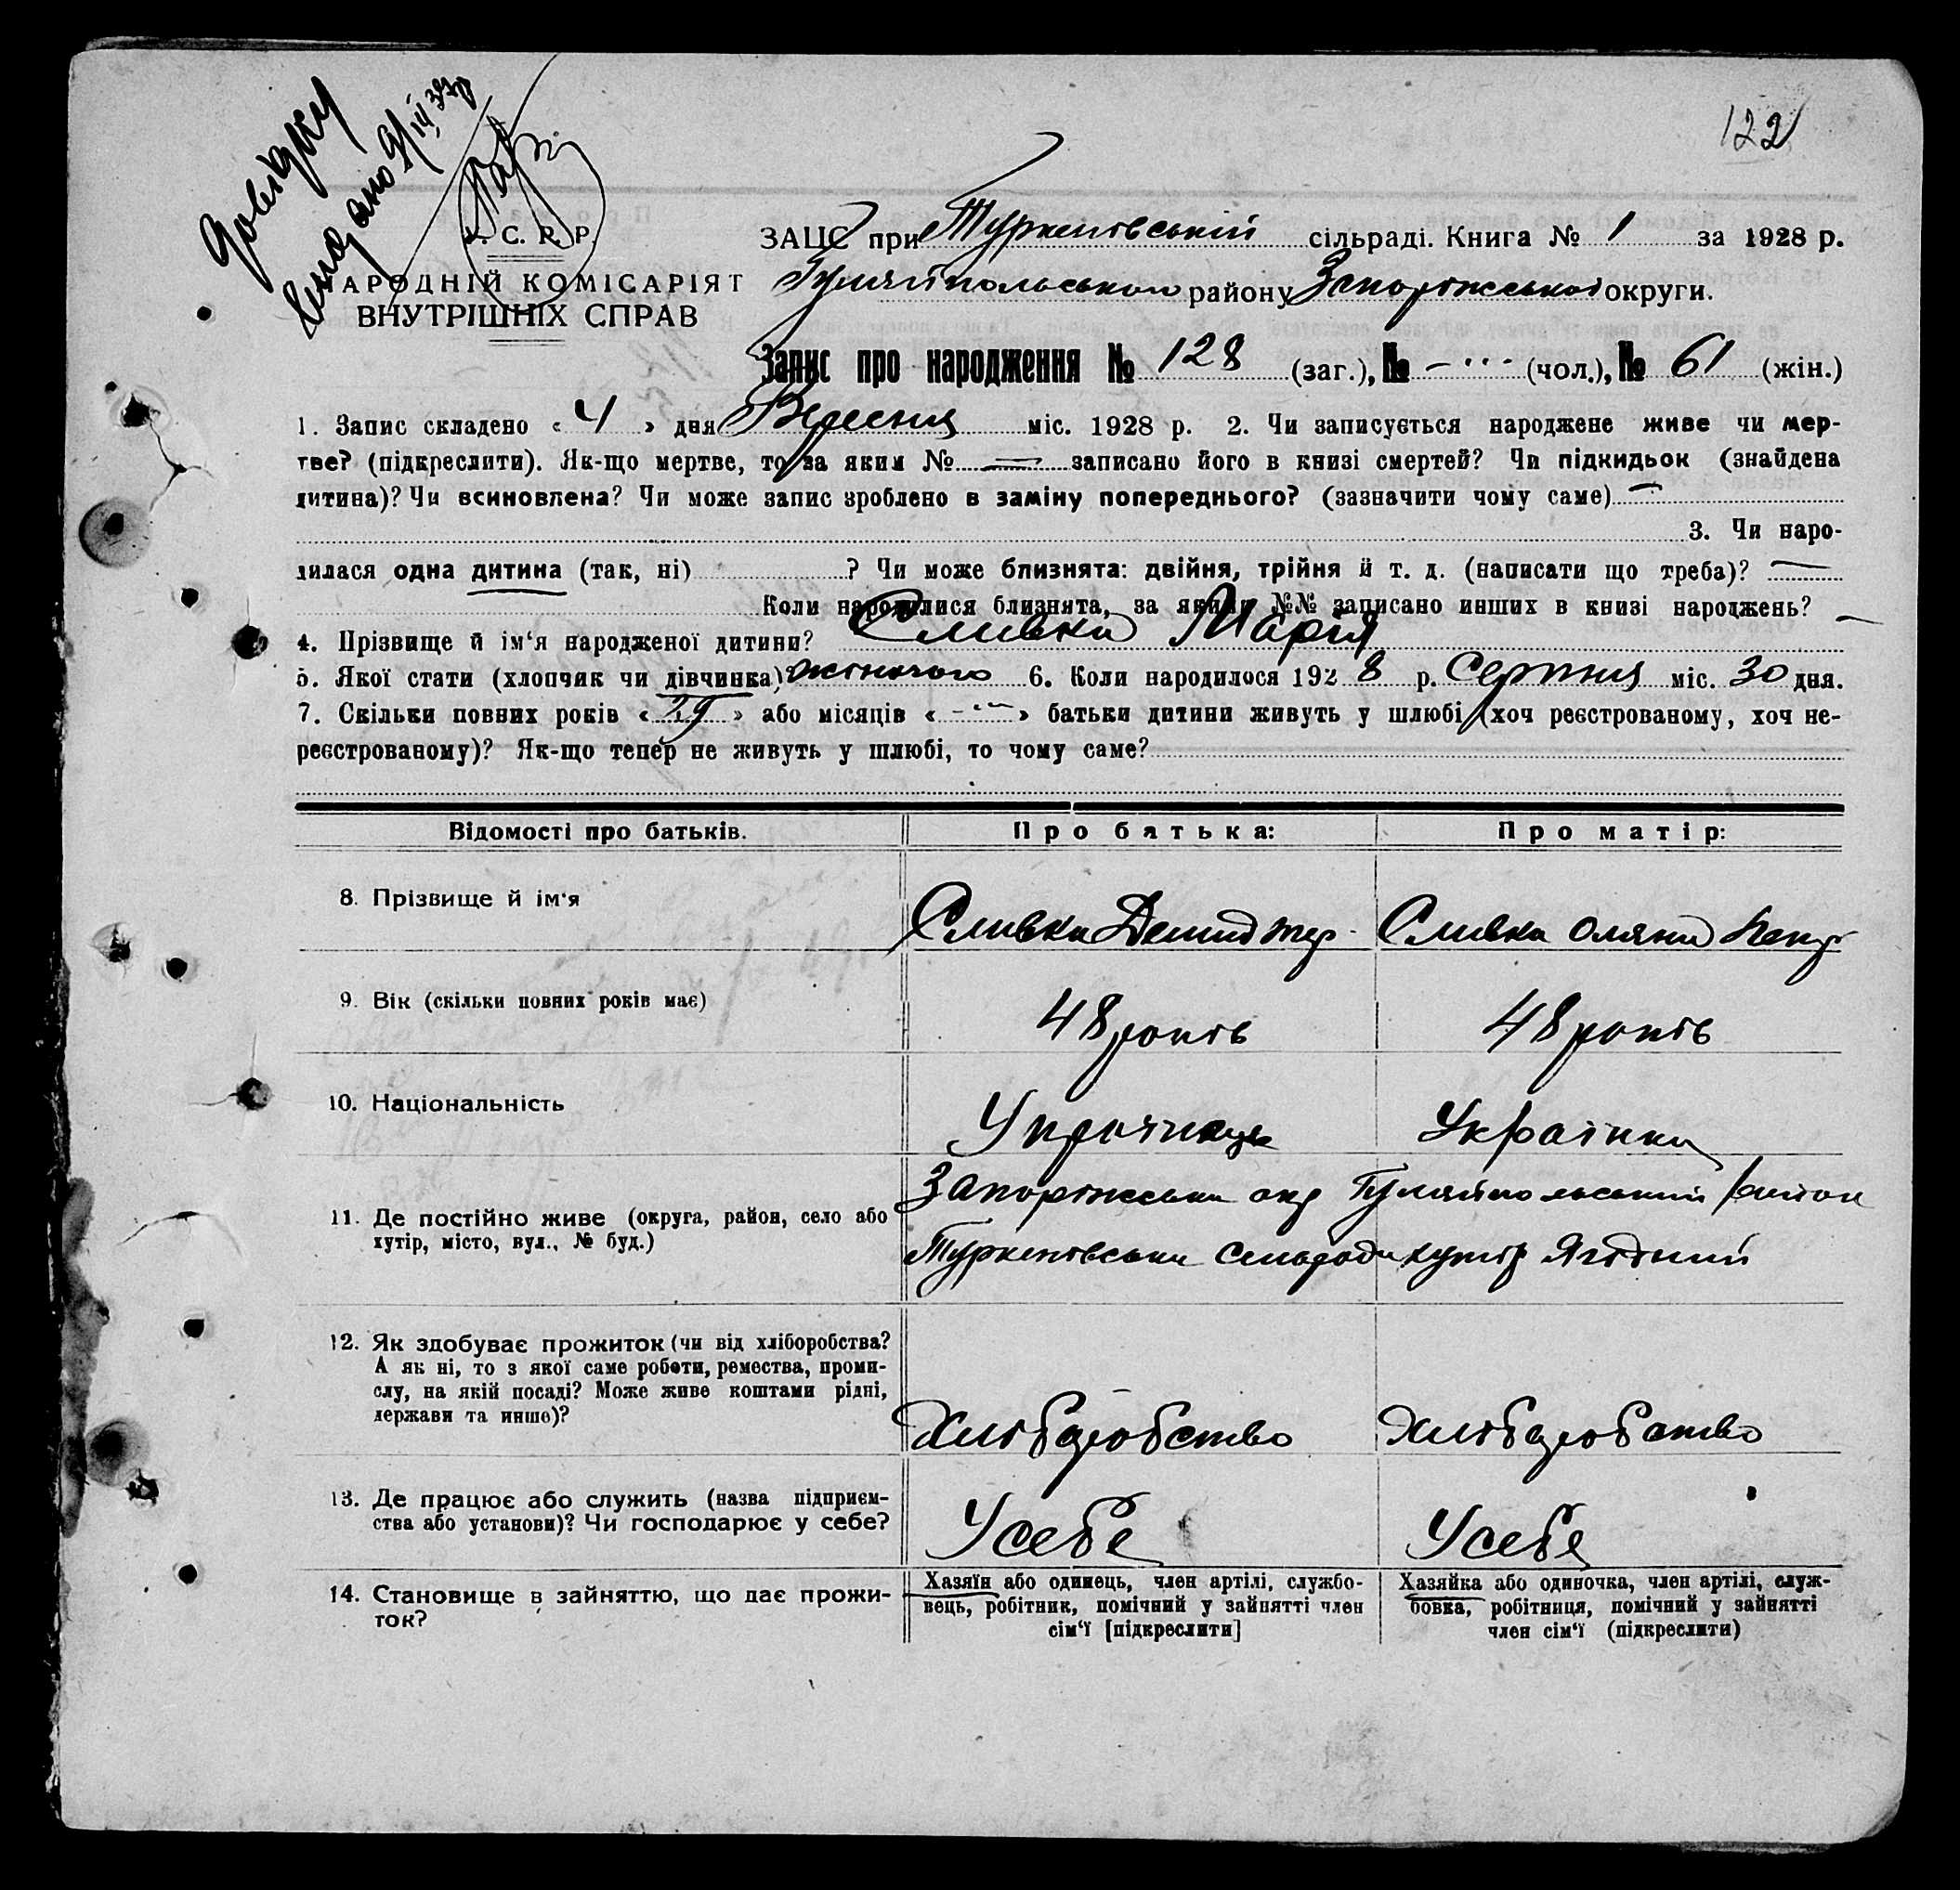 122
Довідку
видано 9/III 37р
У. С. Р. Р.
НАРОДНІЙ КОМІСАРІЯТ
ВНУТРІШНІХ СПРАВ
ЗАЦС при Туркенівській сільраді. Книга № 1 за 1928 р.
Гуляйпольського району Запоріжської округи.
Запис про народження № 128 (заг.), № - ... (чол.), № 61 (жін.)
1. Запис складено « 4 » дня Вересня міс. 1928 р. 2. Чи записується народжене живе чи мер-
тве? (підкреслити). Як-що мертве, то за яким № — записано його в книзі смертей? Чи підкидьок (знайдена
дитина)? Чи всиновлена? Чи може запис зроблено в заміну попереднього? (зазначити чому саме) —
3. Чи наро-
дилася одна дитина (так, ні) ? Чи може близнята: двійня, трійня й т. д. (написати що треба)? —
Коли народилися близнята, за якими №№ записано инших в книзі народжень? —
4. Прізвище й ім‘я народженої дитини? Сливка Марія
5. Якої стати (хлопчик чи дівчинка)? жіночого 6. Коли народилося 1928 р. Серпня міс. 30 дня.
7. Скільки повних років « 29 » або місяців « - ... » батьки дитини живуть у шлюбі (хоч реєстрованому, хоч не-
реєстрованому)? Як-що тепер не живуть у шлюбі, то чому саме?
Відомості про батьків. Про батька: Про матір:
8. Прізвище й ім‘я Сливка Демид Сливка Оляна
9. Вік (скільки повних років має) 48 років 48 років
10. Національність Українець Українка
11. Де постійно живе (округа, район, село або
хутір, місто, вул., № буд.)
Запоріжська окр Гуляйпольський район
Туркенівська сельрада хутір Ягідний
12. Як здобуває прожиток (чи від хліборобства?
А як ні, то з якої саме роботи, ремества, проми-
слу, на якій посаді? Може живе коштами рідні,
держави та инше)?
Хліборобство Хліборобство
13. Де працює або служить (назва підприєм-
ства або установи)? Чи господарює у себе?
У себе У себе
14. Становище в зайняттю, що дає прожи-
ток?
Хазяїн або одинець, член артілі, службо-
вець, робітник, помічний у зайнятті член
сім‘ї [підкреслити]
Хазяйка або одиночка, член артілі, служ-
бовка, робітниця, помічний у зайнятті
член сім‘ї (підкреслити)